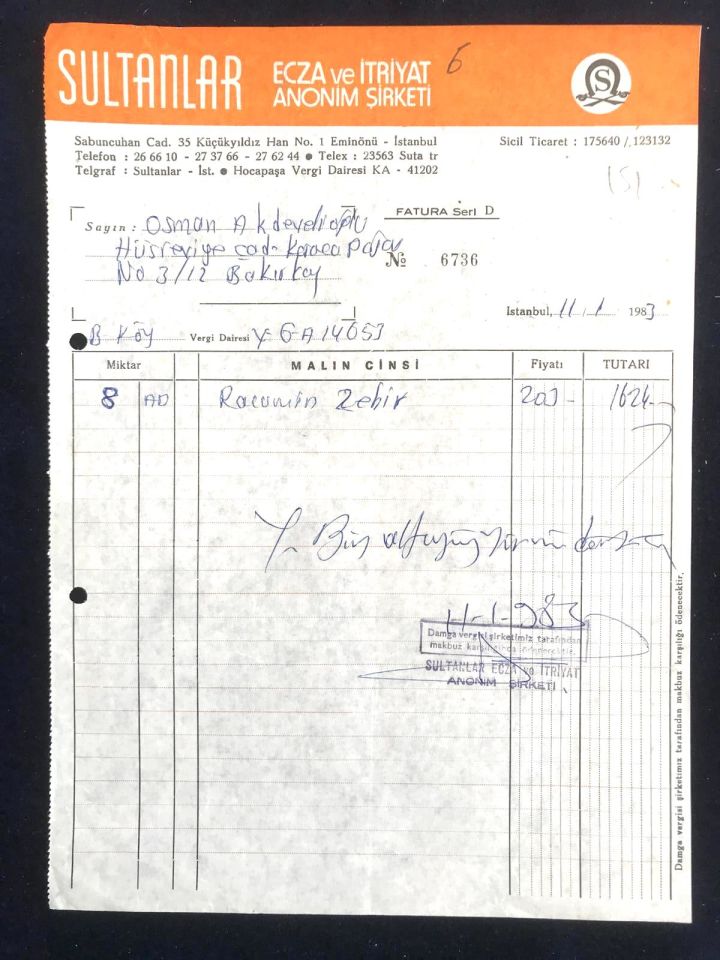 SULTANLAR
ECZA ve İTRİYAT
ANONİM ŞİRKETİ
6
S
Sabuncuhan Cad. 35 Küçükyıldız Han No. 1 Eminönü - İstanbul
Telefon : 26 66 10 - 27 37 66 - 27 62 44 ● Telex : 23563 Suta tr
Telgraf : Sultanlar - İst. ● Hocapaşa Vergi Dairesi KA - 41202
Sicil Ticaret : 175640 / 123132
(5)
Sayın : Osman Akdevelioğlu
Hüsreviye cad. Karaca
No 3/12 Bakırköy
FATURA Seri D
№ 6736
İstanbul, 11/1 1983
B Köy Vergi Dairesi Y-GA14053
Miktar MALIN CİNSİ Fiyatı TUTARI
8 AD Racumin Zehir 203- 1624-
Y. Bin altıyüz
11-1-983
Damga vergisi şirketimiz tarafından
makbuz karşılığında ödenecektir.
SULTANLAR ECZA ve İTRİYAT
ANONİM ŞİRKETİ
Damga vergisi şirketimiz tarafından makbuz karşılığı ödenecektir.